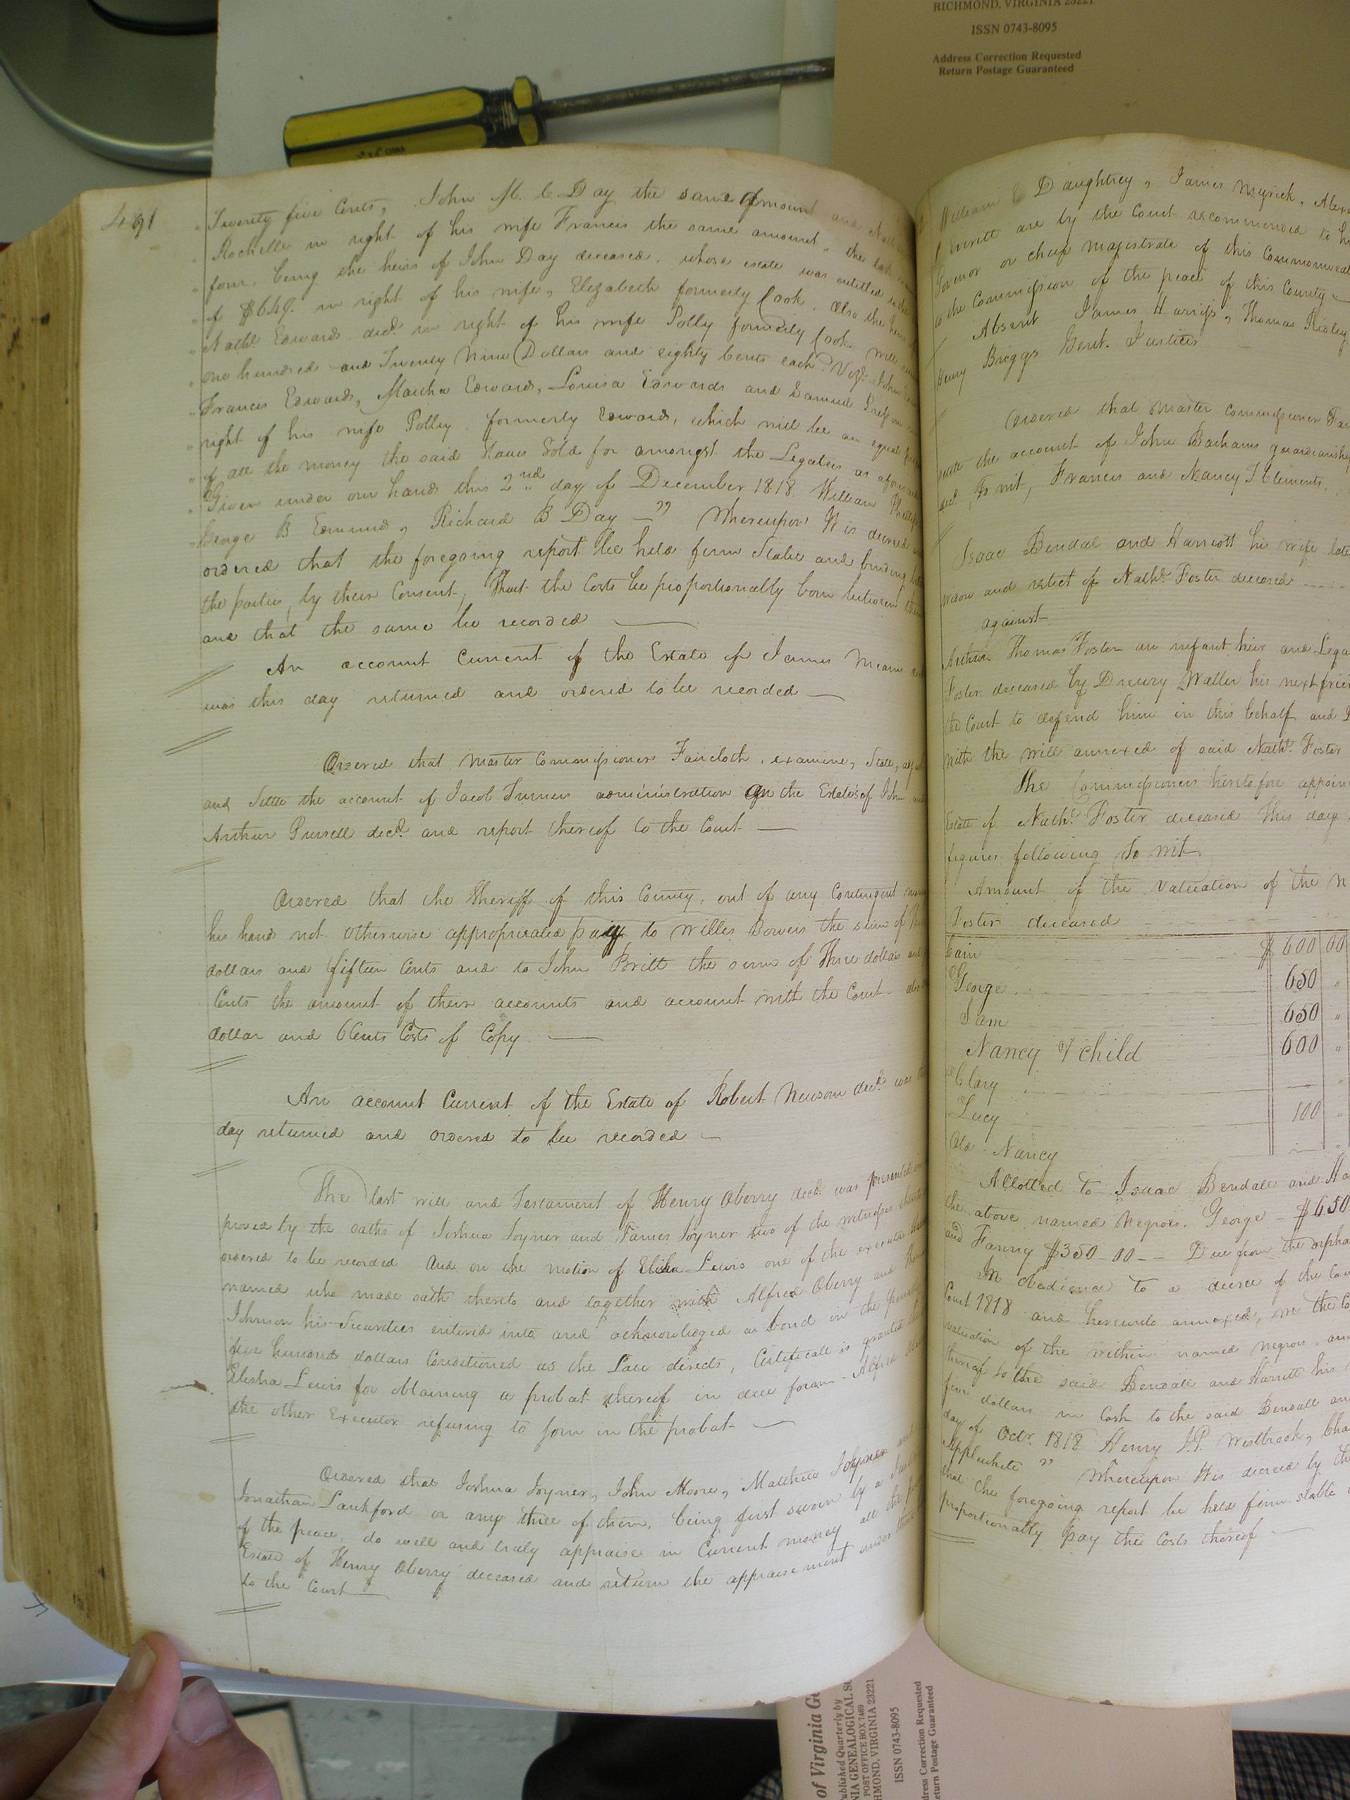 RICHMOND, VIRGINIA 23221
ISSN 0743-8095
Address Correction Requested
Return Postage Guaranteed
491
Twenty five Cents, John M. C Day the same Amount and
Rochelle in right of his wife Frances the same amount, the
four, being the heirs of John Day deceased, whose estate was entitled
of $649. in right of his wife, Elizabeth formerly Cook. also the
Nathl Edwards decd in right of his wife Polly formerly Cook will
one hundred and Twenty Nine Dollars and eighty Cents each Vizt John
Frances Edwards, Martha Edwards, Louisa Edwards and Samuel
right of his wife Polly formerly Edwards, which will be an equal
of all the money the said Slaves Sold for amongst the Legatees as
Given under our hands this 2nd day of December 1818. William
George B Edmunds, Richard B Day — " Whereupon It is decreed
ordered that the foregoing report be held firm Stable and binding
the parties, by their Consent, That the Costs be proportionally born between
and that the same be recorded —
An account Current of the Estate of James
was this day returned and ordered to be recorded —
Ordered that Master Commissioner Faircloth, examine, State,
and Settle the account of Jacob Turners administration on the Estates of John
Arthur Pursell decd. and report thereof to the Court —
Ordered that the Sheriff of this County, out of any Contingent
his hands not otherwise appropriated pay to Willis Bowers the sum of
dollars and fifteen Cents and to John Britt the sum of Three dollars
Cents the amount of their accounts and account with the Court
dollar and 6 Cents Costs of Copy —
An account Current of the Estate of Robert Newsom decd. was
day returned and ordered to be recorded —
The last will and Testament of Henry Oberry decd. was presented
proved by the oaths of Joshua Joyner and James Joyner two of the witnesses
ordered to be recorded And on the motion of Elisha Lewis one of the
named who made oath thereto and together with Alfred Oberry and
Johnson his Securities entered into and acknowledged a bond in the
five hundred dollars Conditioned as the Law directs, Certificate is granted
Elisha Lewis for obtaining a probat thereof in due form -
the other Executor refusing to join in the probat —
Ordered that Joshua Joyner, John Moore, Matthew Joyner
Jonathan Lankford or any three of them, being first sworn by a
of the peace, do well and truly appraise in Current money all the
Estate of Henry Oberry deceased and return the appraisement under
to the Court —
William C Daughtrey, James Myrick,
are by the Court recommended to
Governor or chief magistrate of this Commonwealth
to the Commission of the peace of this County —
Absent James Harriss, Thomas Ridley
Henry Briggs Gent. Justices
Ordered that Master Commissioner
the account of John Barhams guardianship
decd. To wit, Frances and Nancy T Clements.
Isaac Bendal and Harriott his wife late
widow and relict of Nathl. Foster deceased
against
Arthur Thomas Foster an infant heir and
Foster deceased by Drewry Waller his next friend
the Court to defend him in this behalf and
with the will annexed of said Nathl. Foster
The Commissioners heretofore
Estate of Nathl. Foster deceased this day
figures following To wit
Amount of the valuation of the
Foster deceased
Cain $ 600 00
George 650 "
Sam 650 "
Nancy & child 600 "
Clary —
Lucy 100 "
Old Nancy —
Allotted to Isaac Bendall and
the above named Negroes. George - $650
and Fanny $350 - 00 — Due from the
In obedience to a decree of the
Court 1818 and hereunto annexed, we the
valuation of the within named negroes
thereof to the said Bendall and Harriott his
five dollars in Cash to the said Bendall
day of Octr. 1818 Henry J.P. Westbrook,
Applewhite " Whereupon It is decreed by the
that the foregoing report be held firm stable
proportionally pay the Costs thereof —
of Virginia
Published Quarterly by
GENEALOGICAL
POST OFFICE BOX 7469
RICHMOND, VIRGINIA 23221
ISSN 0743-8095
Address Correction Requested
Return Postage Guaranteed